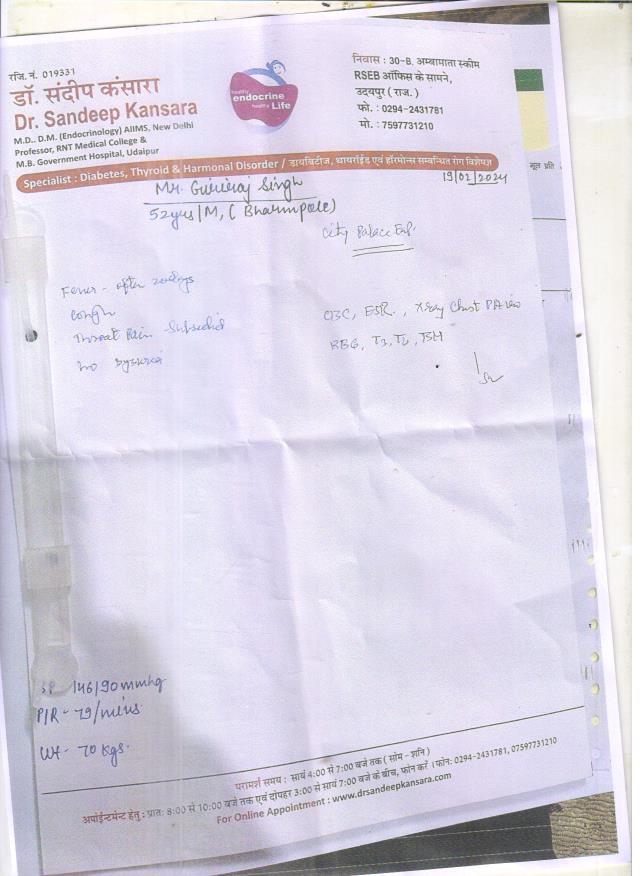 रजि. नं. 019331
डॉ. संदीप कंसारा
Dr. Sandeep Kansara
M.D., D.M. (Endocrinology) AIIMS, New Delhi
Professor, RNT Medical College &
M.B. Government Hospital, Udaipur
healthy
endocrine
healthy Life
निवास : 30-B, अम्बामाता स्कीम
RSEB ऑफिस के सामने,
उदयपुर (राज.)
फो. : 0294-2431781
मो. : 7597731210
Specialist : Diabetes, Thyroid & Harmonal Disorder / डायबिटीज, थायरॉईड एवं हॉरमोन्स सम्बन्धित रोग विशेषज्ञ
मूल प्रति
Mr. Singh
19/02/2024
52yrs/M, (
City Palace
Fever - after
Cough
Throat Pain - Subsided
No
CBC, ESR, Xray Chest PA view
RBG, T3, T4, TSH
BP 146/90mmhg
P/R - 79/mins
Wt - 70 kgs.
परामर्श समय : सायं 4:00 से 7:00 बजे तक ( सोम - शनि )
अपोईन्टमेन्ट हेतु : प्रातः 8:00 से 10:00 बजे तक एवं दोपहर 3:00 से सायं 7:00 बजे के बीच, फोन करें । फोन: 0294-2431781, 07597731210
For Online Appointment : www.drsandeepkansara.com